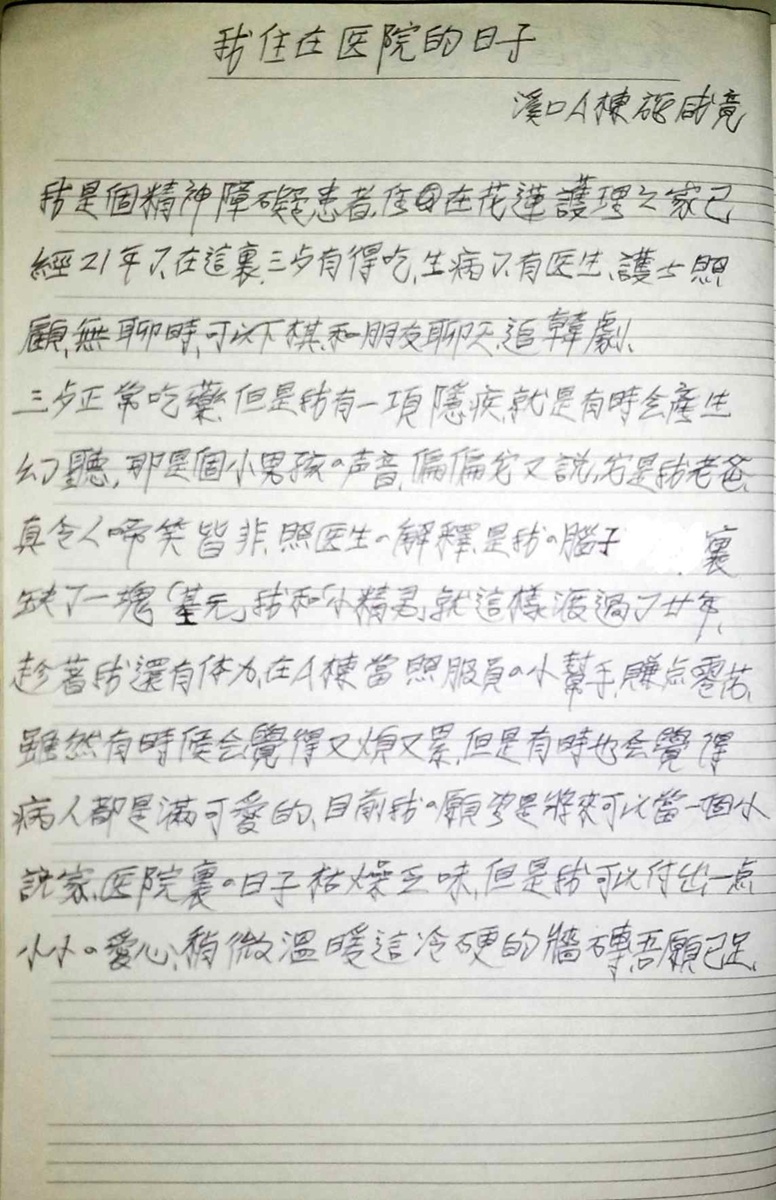 我住在医院的日子
溪口A棟 咸竟
我是個精神障礙患者,住在花蓮護理之家已
經21年了,在這裏,三歺有得吃,生病了有医生、護士照
顧,無聊時,可以下棋,和朋友聊天,追韓劇、
三歺正常吃藥,但是我有一項隱疾,就是有時会產生
幻聽,那是個小男孩の声音,偏偏它又說,它是我老爸、
真令人啼笑皆非,照医生の解釋,是我の腦子 裏
缺了一塊「基元」我和「小精君」就這樣渡過了廿年、
趁著我還有体力,在A棟當照服員の小幫手,賺点零花、
雖然有時候会覺得又煩又累,但是有時也会覺得
病人都是滿可愛的、目前我の願望是將來可以當一個小
說家、医院裏の日子枯燥乏味,但是我可以付出一点
小小の愛心,稍微溫暖這冷硬的牆磚,吾願已足、